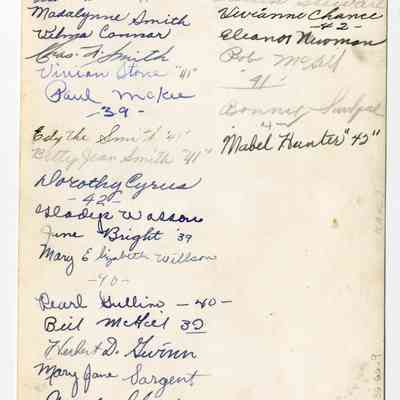 Madalynne Smith
Wilma Connar
Chas. F. Smith
Vivian Stone "41"
Paul McKee
-39-
Edythe Smith '41'
Betty Jean Smith "41"
Dorothy Cyrus
-42-
Gladys Wasson
June Bright '39
Mary Elizabeth Willson
-40-
Pearl Gullion -40-
Bill McKee 39
Herbert D. Gwinn
Mary Jane Sargent
Vivianne Chance
-42-
Eleanor Newman
Bob
41
Bonny
Mabel Hunter "42"